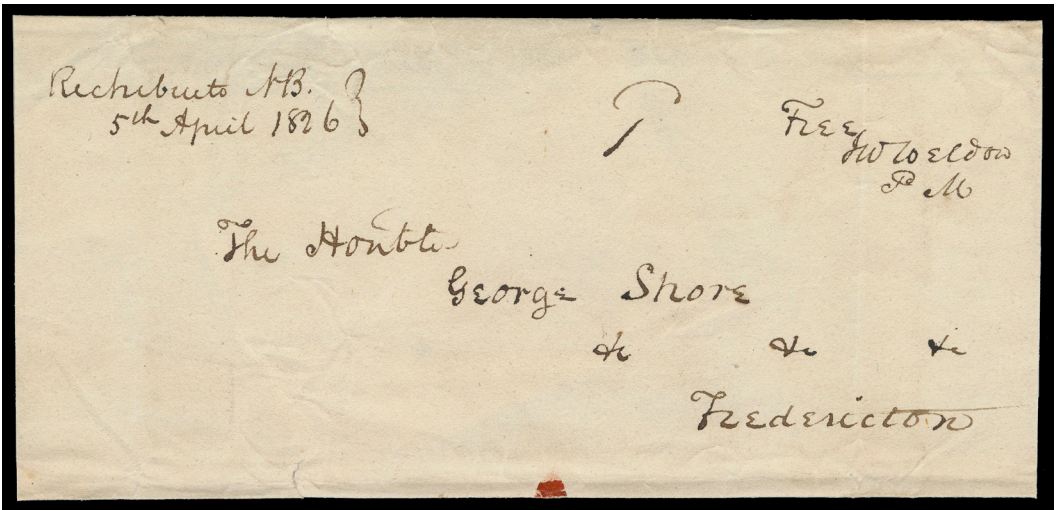 Richibucto NB.
5th April 1826
Free
JW Weldon
P M
The Honble
George Shore
&c &c &c
Fredericton